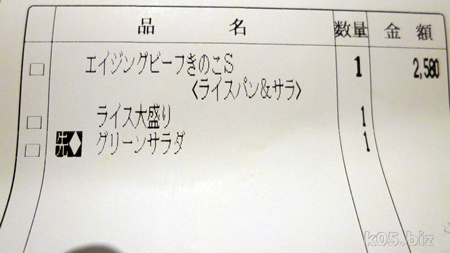 品 名 数量 金額
エイジングビーフきのこS 1 2,580
<ライスパン&サラ>
ライス大盛り 1
グリーンサラダ 1
k05.biz